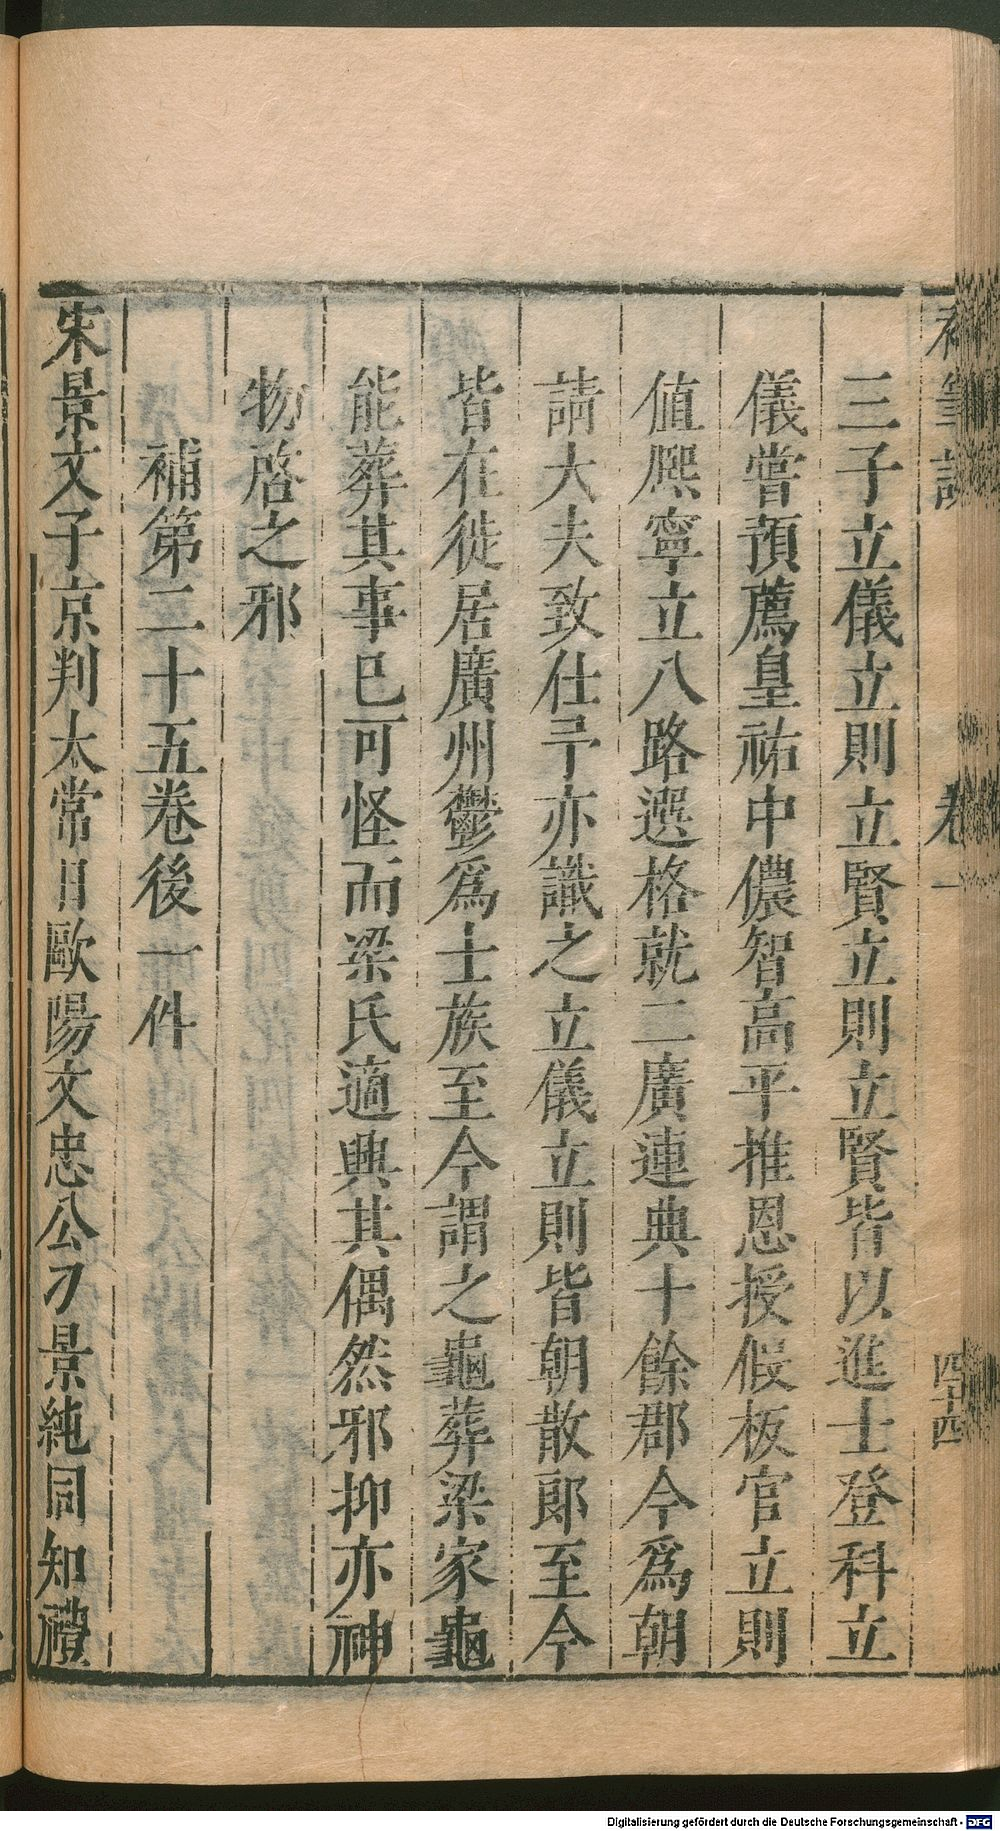 補筆談 卷一 四十四
三子立儀立則立賢立則立賢皆以進士登科立
儀嘗預薦皇祐中儂智高平推恩授假板官立則
値熈寧立八路選格就二廣連典十餘郡今爲朝
請大夫致仕予亦識之立儀立則皆朝散郎至今
皆在徙居廣州鬱爲士族至今謂之龜葬梁家龜
能葬其事已可怪而梁氏適興其偶然邪抑亦神
物啓之邪
補第二十五卷後一件
宋景文子京判太常日歐陽文忠公刁景純同知禮
Digitalisierung gefördert durch die Deutsche Forschungsgemeinschaft - DFG